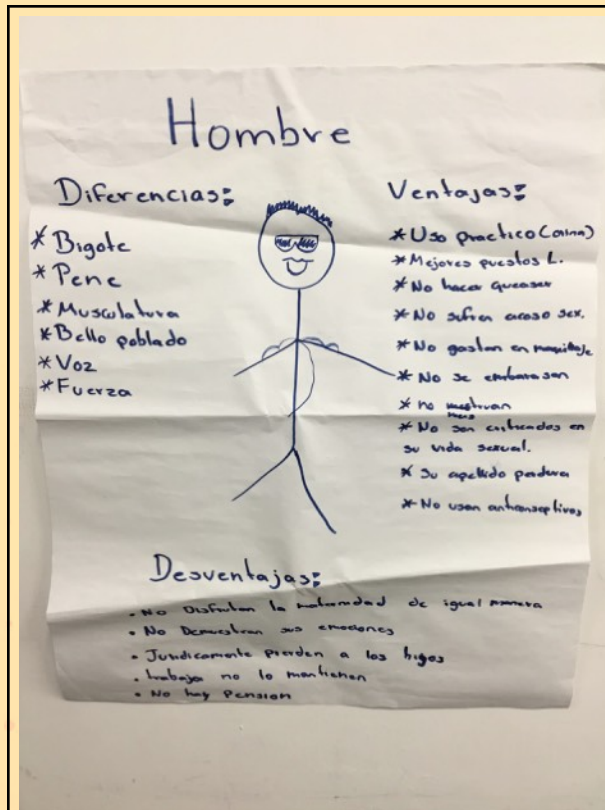 Hombre
Diferencias:
* Bigote
* Pene
* Musculatura
* Bello poblado
* Voz
* Fuerza
Ventajas:
* Uso practico (orina)
* Mejores puestos L.
* No hacer queaser
* No sufren acoso sex.
* No gastan en maquillaje
* No se embarasan
* no mestruan
* No son criticados en
su vida sexual.
* Su apellido perdura
* No usan anticonseptivos
Desventajas:
• No Disfrutan la maternidad de igual manera
• No Demuestran sus emociones
• Juridicamente pierden a los higos
• trabaja no lo mantienen
• No hay Pension